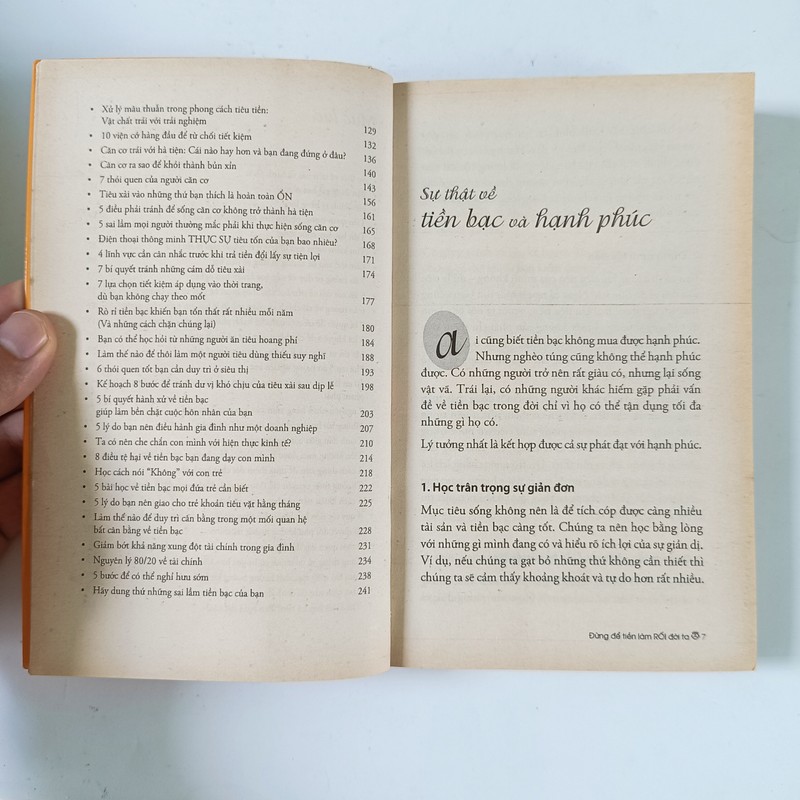 • Xử lý mâu thuẫn trong phong cách tiêu tiền:
Vật chất trái với trải nghiệm 129
• 10 viện cớ hàng đầu để từ chối tiết kiệm 132
• Căn cơ trái với hà tiện: Cái nào hay hơn và bạn đang đứng ở đâu? 136
• Căn cơ ra sao để khỏi thành bủn xỉn 140
• 7 thói quen của người căn cơ 143
• Tiêu xài vào những thứ bạn thích là hoàn toàn ỔN 156
• 5 điều phải tránh để sống căn cơ không trở thành hà tiện 161
• 5 sai lầm mọi người thường mắc phải khi thực hiện sống căn cơ 165
• Điện thoại thông minh THỰC SỰ tiêu tốn của bạn bao nhiêu? 168
• 4 lĩnh vực cần cân nhắc trước khi trả tiền đổi lấy sự tiện lợi 171
• 7 bí quyết tránh những cám dỗ tiêu xài 174
• 7 lựa chọn tiết kiệm áp dụng vào thời trang,
dù bạn không chạy theo mốt 177
• Rò rỉ tiền bạc khiến bạn tổn thất rất nhiều mỗi năm
(Và những cách chặn chúng lại) 180
• Bạn có thể học hỏi từ những người ăn tiêu hoang phí 184
• Làm thế nào để thôi làm một người tiêu dùng thiếu suy nghĩ 188
• 6 thói quen tốt bạn cần duy trì ở siêu thị 193
• Kế hoạch 8 bước để tránh dư vị khó chịu của tiêu xài sau dịp lễ 198
• 5 bí quyết hành xử về tiền bạc
giúp làm bền chặt cuộc hôn nhân của bạn 203
• 5 lý do bạn nên điều hành gia đình như một doanh nghiệp 207
• Ta có nên che chắn con mình với hiện thực kinh tế? 210
• 8 điều tệ hại về tiền bạc bạn đang dạy con mình 214
• Học cách nói “Không” với con trẻ 218
• 5 bài học về tiền bạc mọi đứa trẻ cần biết 222
• 5 lý do bạn nên giao cho trẻ khoản tiêu vặt hằng tháng 225
• Làm thế nào để duy trì cân bằng trong một mối quan hệ
bất cân bằng về tiền bạc 228
• Giảm bớt khả năng xung đột tài chính trong gia đình 231
• Nguyên lý 80/20 về tài chính 234
• 5 bước để có thể nghỉ hưu sớm 238
• Hãy dung thứ những sai lầm tiền bạc của bạn 241
Sự thật về
tiền bạc và hạnh phúc
ai cũng biết tiền bạc không mua được hạnh phúc.
Nhưng nghèo túng cũng không thể hạnh phúc
được. Có những người trở nên rất giàu có, nhưng lại sống
vật vã. Trái lại, có những người khác hiếm gặp phải vấn
đề về tiền bạc trong đời chỉ vì họ có thể tận dụng tối đa
những gì họ có.
Lý tưởng nhất là kết hợp được cả sự phát đạt với hạnh phúc.
1. Học trân trọng sự giản đơn
Mục tiêu sống không nên là để tích cóp được càng nhiều
tài sản và tiền bạc càng tốt. Chúng ta nên học bằng lòng
với những gì mình đang có và hiểu rõ ích lợi của sự giản dị.
Ví dụ, nếu chúng ta gạt bỏ những thứ không cần thiết thì
chúng ta sẽ cảm thấy khoảng khoát và tự do hơn rất nhiều.
Đừng để tiền làm RỐI đời ta 7